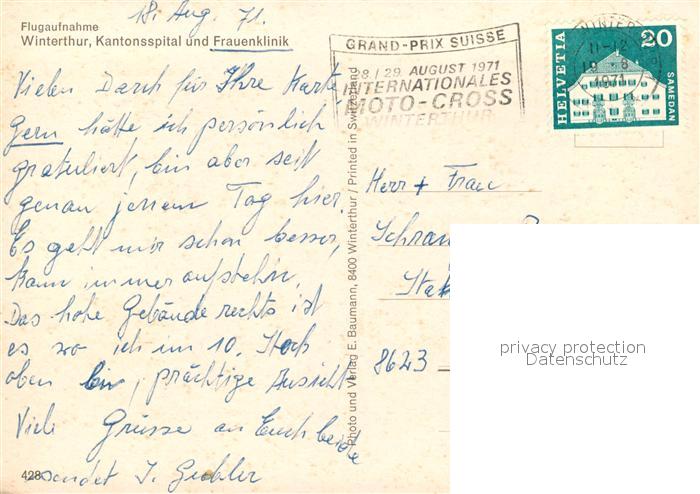 18. Aug. 71.
Flugaufnahme
Winterthur, Kantonsspital und Frauenklinik
Vielen Dank für Ihre Karte
Gern hätte ich persönlich
gratuliert, bin aber seit
genau jenem Tag hier.
Es geht mir schon besser,
kann immer aufstehn.
Das hohe Gebäude rechts ist
es wo ich im 10. Stock
oben bin, prächtige Aussicht
Viele Grüsse an Euch beide
sendet I. Gubler
428
Photo und Verlag E. Baumann, 8400 Winterthur / Printed in Switzerland
GRAND-PRIX SUISSE
28./29. AUGUST 1971
INTERNATIONALES
MOTO-CROSS
WINTERTHUR
WINTERTHUR
11-12
19 8
1971
HELVETIA
20
SAMEDAN
Herr + Frau
8623
privacy protection
Datenschutz